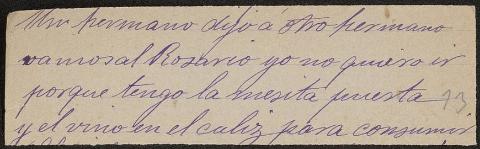 Un hermano dijo á otro hermano
vamos al Rosario yo no quiero ir
porque tengo la mesita puesta 13
y el vino en el caliz para consumir